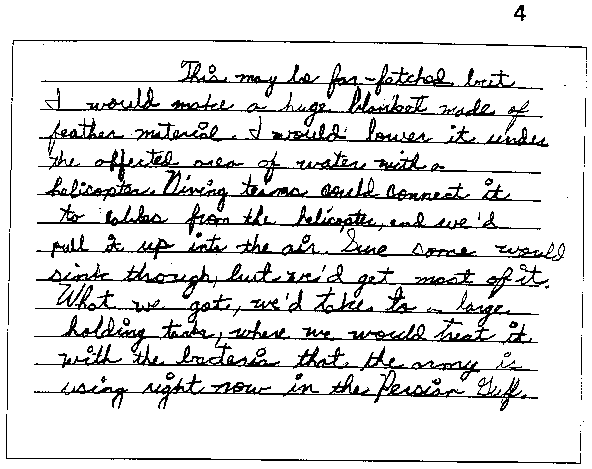 4
This may be far-fatched but
I would make a huge blanket made of
feather material. I would lower it under
the affected area of water with a
helicopter. Diving teams could connect it
to cables from the helicopter, and we'd
pull it up into the air. Sure some would
sink through, but we'd get most of it.
What we got, we'd take to a large
holding tank, where we would treat it
with the bacteria that the army is
using right now in the Persian Gulf.